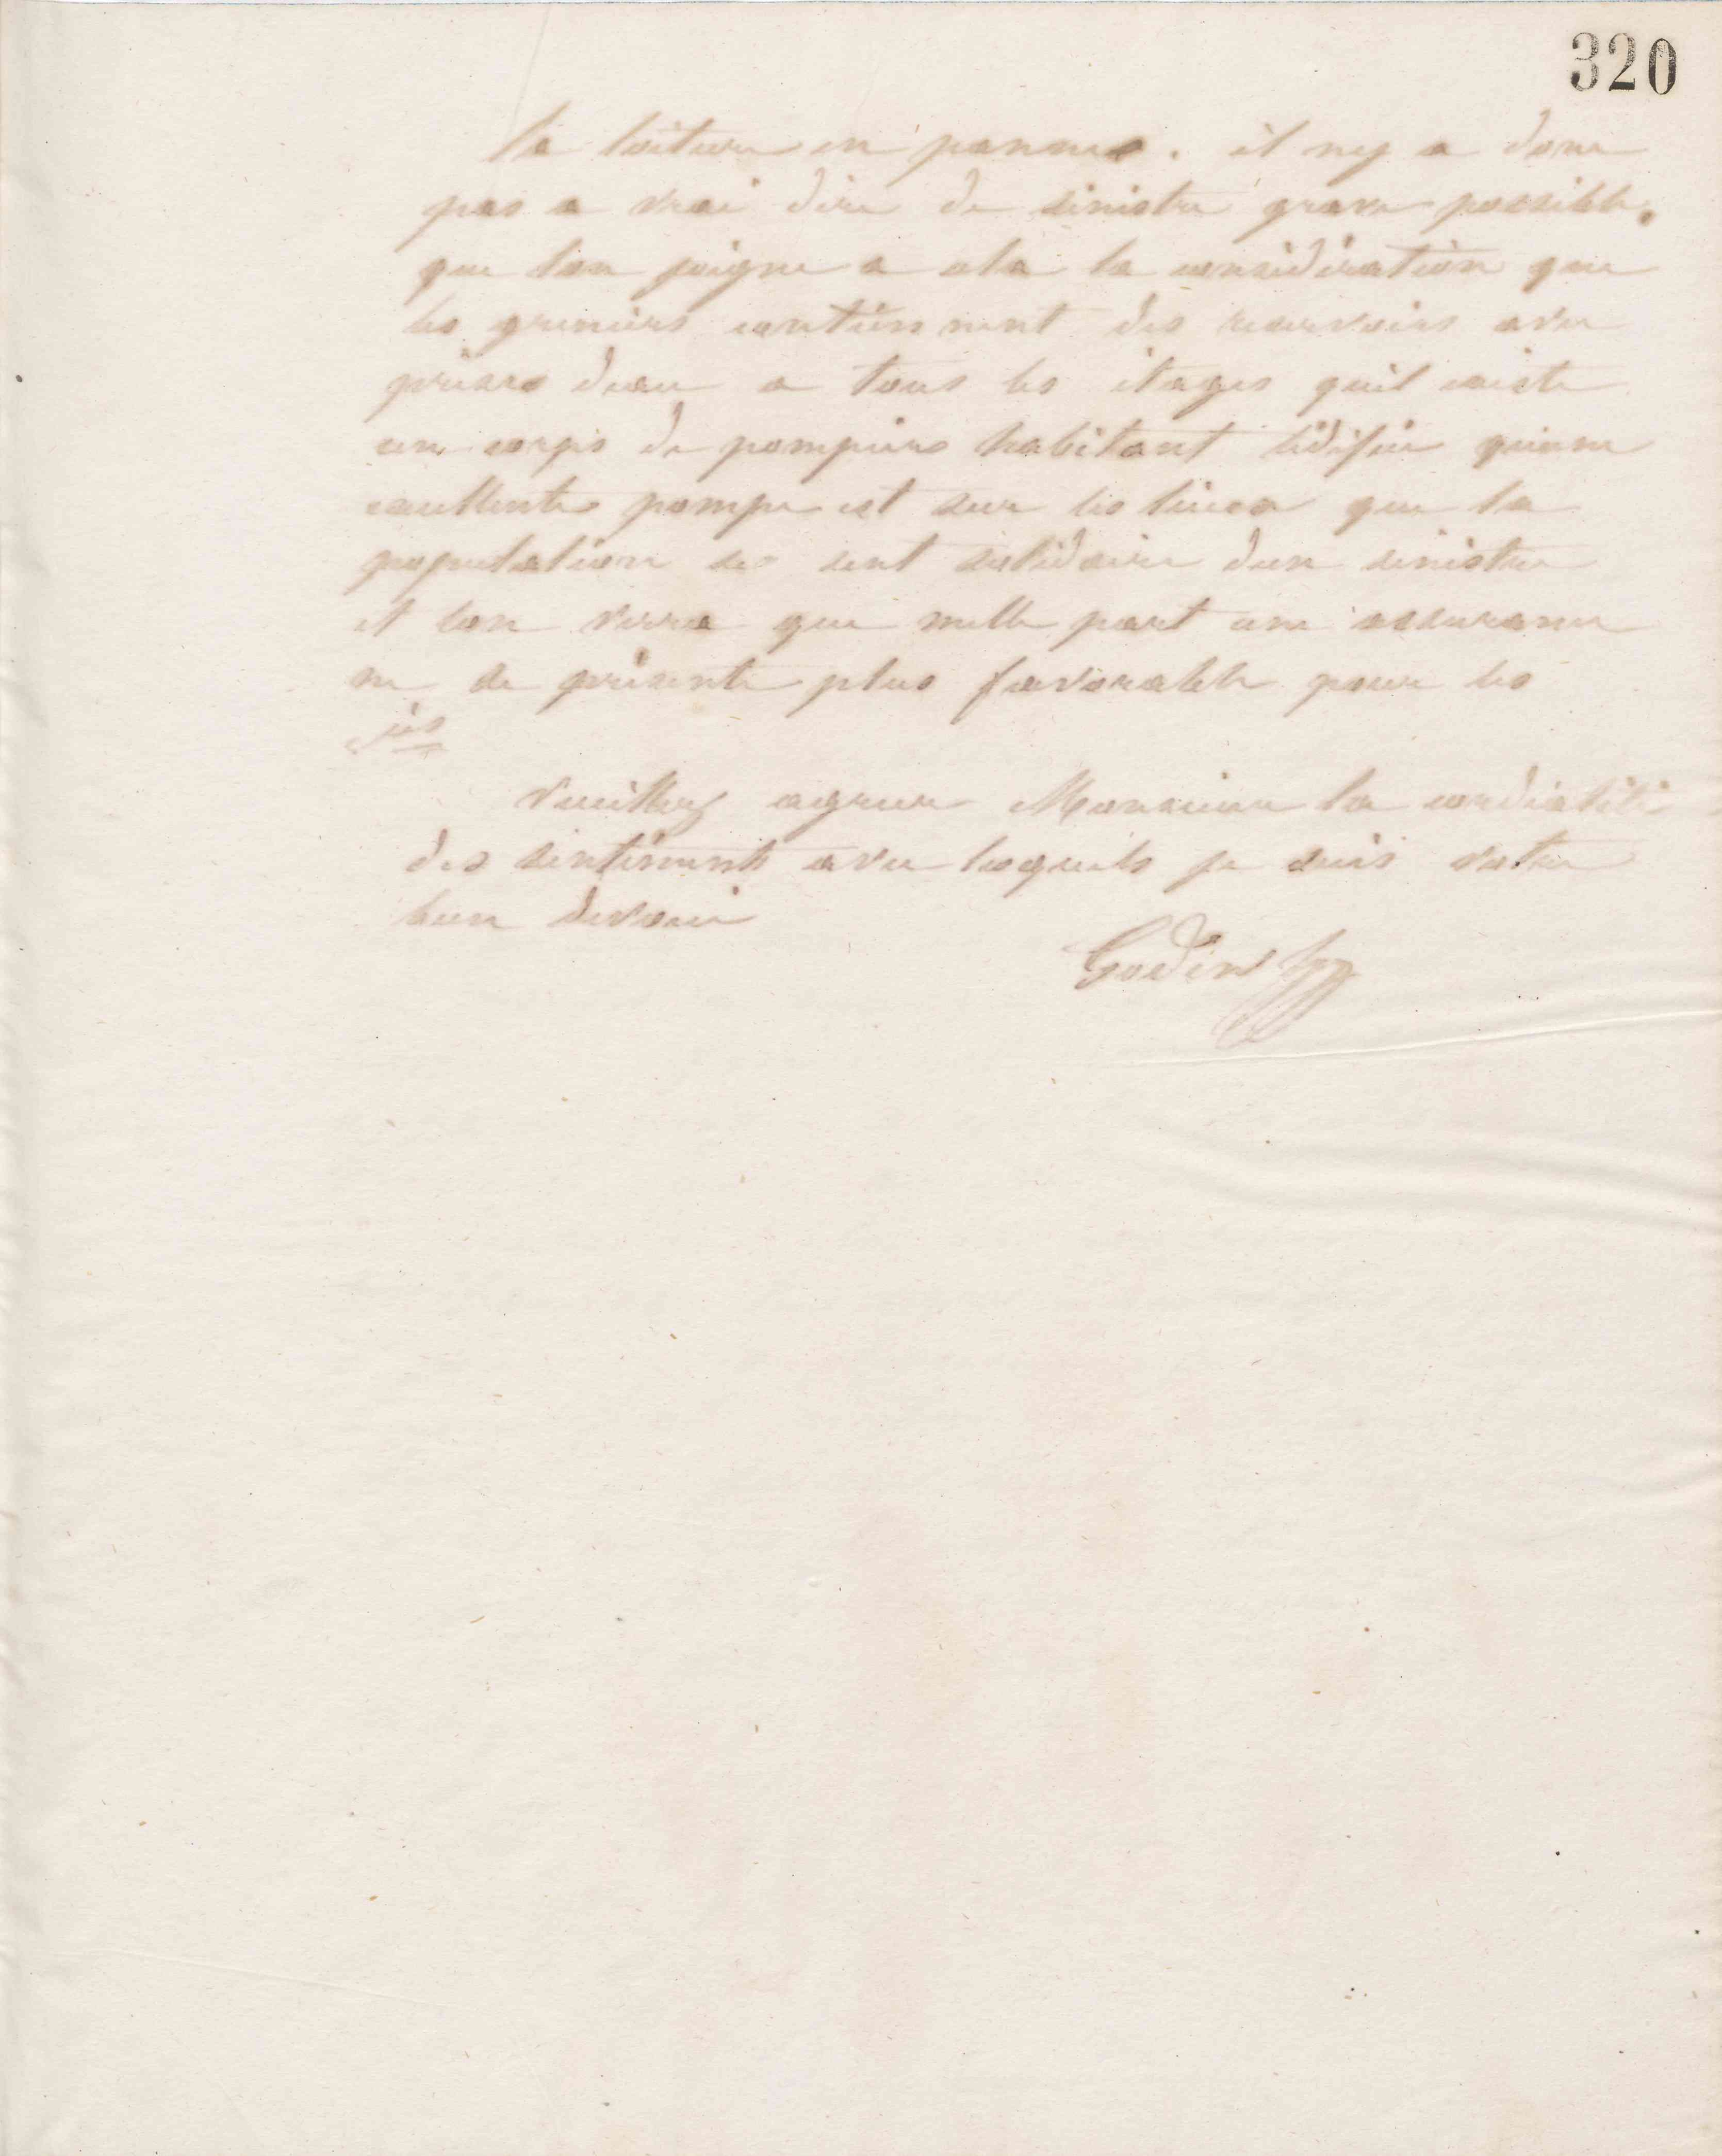 320
la toiture en pannes. il ny a donc
pas a vrai dire de sinistre grave possible.
que lon joigne a cela la considération que
les greniers contiennent des reservoirs avec
prises deau a tous les étages quil existe
un corps de pompiers habitant lédifice quune
excellente pompe est sur les lieux que la
population se sent solidaire dun sinistre
et lon verra que nulle part une assurance
ne se présente plus favorable pour les
cies
Veuillez agreer Monsieur la cordialité
des sentiments avec lesquels je suis votre
bien dévoué
Godin